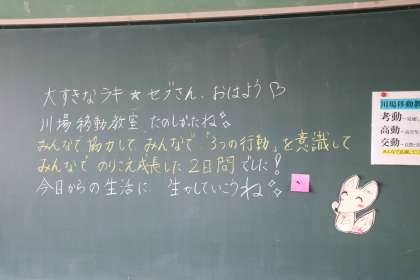 大すきなラキ★セブさん、おはよう♡
川場移動教室 たのしかったね
みんなで協力して みんなで「3つの行動」を意識して
みんなで のりこえ成長した2日間でした!
今日からの生活に 生かしていこうね
川場移動教
考動
高動
交動